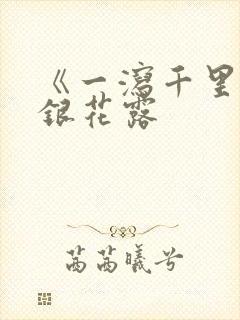 《一瀉千里
銀花露
茜茜曦兮